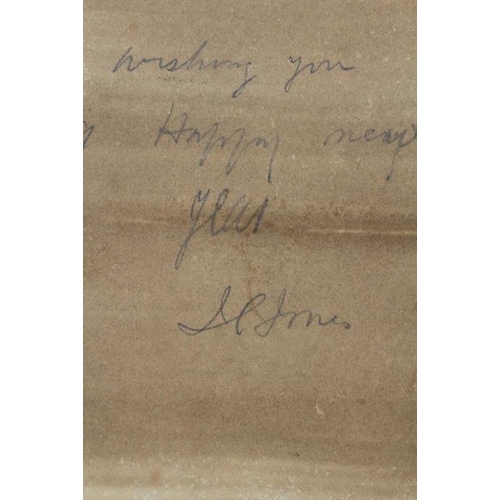 wishing you
a Happy new
year
S C Jones